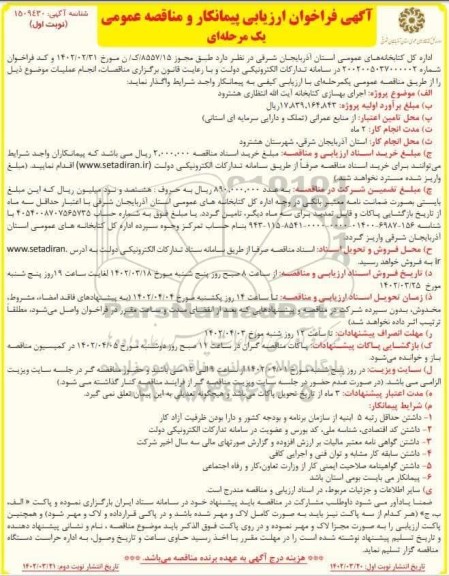 شناسه آگهی: ۱۵۰۹۴۳۰
(نوبت اول)
آگهی فراخوان ارزیابی پیمانکار و مناقصه عمومی
یک مرحله‌ای
اداره کل کتابخانه‌های عمومی استان آذربایجان شرقی در نظر دارد طبق مجوز ۸۵۵۷/۱۵/ک/ن مورخ ۱۴۰۲/۰۲/۳۱ و کد فراخوان
شماره ۲۰۰۲۰۰۵۰۳۷۰۰۰۰۰۲ در سامانه تدارکات الکترونیکی دولت و با رعایت قانون برگزاری مناقصات، انجام عملیات موضوع ذیل
را از طریق مناقصه عمومی یکمرحله‌ای با ارزیابی کیفی به پیمانکار واجد شرایط واگذار نمایند:
الف) موضوع پروژه: اجرای بهسازی کتابخانه آیت الله انتظاری هشترود
ب) مبلغ برآورد اولیه پروژه: ۱۷,۸۳۹,۱۶۴,۸۴۳ریال
پ) محل تامین اعتبار: از منابع عمرانی (تملک و دارایی سرمایه ای استانی)
ت) مدت انجام کار: ۲ ماه
ث) محل انجام کار: استان آذربایجان شرقی، شهرستان هشترود
ج) مبلغ خرید اسناد ارزیابی و مناقصه: مبلغ خرید اسناد مناقصه ۲,۰۰۰,۰۰۰ ریال می باشد که پیمانکاران واجد شرایط
می‌توانند برای خرید اسناد مناقصه صرفاً از طریق سامانه تدارکات الکترونیکی دولت (www.setadiran.ir) اقدام نمایند. (مبلغ
واریز شده مسترد نخواهد شد.)
چ) مبلغ تضمین شرکت در مناقصه: به عدد ۸۹۰,۰۰۰,۰۰۰ ریال به حروف: هشتصد و نود میلیون ریال که این مبلغ
بایستی بصورت ضمانت نامه معتبر بانکی در وجه اداره کل کتابخانه های عمومی استان آذربایجان شرقی با اعتبار حداقل سه ماه
از تاریخ بازگشایی پاکات و قابل تمدید برای سه ماه دیگر، تامین گردد. یا مبلغ فوق به شماره حساب
شناسه بنام حساب تمرکز وجوه سپرده اداره کل کتابخانه های عمومی استان
آذربایجان شرقی واریز گردد.
ح) محل فروش و تحویل اسناد: اسناد مناقصه صرفا از طریق سامانه ستاد تدارکات الکترونیکی دولت به آدرس www.setadiran.
ir به فروش خواهد رسید.
د) تاریخ فروش اسناد ارزیابی و مناقصه: از ساعت ۸ صبح روز پنج شنبه مورخ ۱۴۰۲/۰۳/۱۸ لغایت ساعت ۱۹ روز پنج شنبه
مورخ ۱۴۰۲/۰۳/۲۵
ذ) زمان تحویل اسناد ارزیابی و مناقصه: تا ساعت ۱۴ روز یکشنبه مورخ ۱۴۰۲/۰۴/۰۴ (به پیشنهادهای فاقد امضاء، مشروط،
مخدوش، بدون سپرده شرکت در مناقصه و پیشنهادهایی که بعد از انقضای مدت و ساعت مقرر در فراخوان واصل می‌شود، مطلقاً
ترتیب اثر داده نخواهد شد)
ر) مهلت انصراف پیشنهادات: تا ساعت ۱۳ روز شنبه مورخ ۱۴۰۲/۰۴/۰۳
ک) بازگشایی پاکات پیشنهادات: پاکات مناقصه گران در ساعت ۱۱ صبح روز دوشنبه مورخ ۱۴۰۲/۰۴/۰۵ در کمیسیون مناقصه
باز و خوانده می‌شود.
ل) سایت ویزیت: در روز پنج شنبه مورخ ۱۴۰۲/۰۴/۰۱ از ساعت ۹ الی ۱۳ می باشد و حضور مناقصه گر در جلسه سایت ویزیت
الزامی می باشد. (در صورت عدم حضور در جلسه سایت ویزیت مناقصه گر از فرایند مناقصه کنار گذاشته می شود.)
ه) مدت اعتبار پیشنهادات: ۳ ماه از تاریخ تحویل پاکات می‌باشد و هیچگونه تعدیلی به این پیمان تعلق نمی گیرد.
م) شرایط پیمانکار:
۱- داشتن حداقل رتبه ۵ ابنیه از سازمان برنامه و بودجه کشور و دارا بودن ظرفیت آزاد کار
۲- داشتن کد اقتصادی، شناسه ملی، کد بورس و عضویت در سامانه تدارکات الکترونیکی دولت
۳- داشتن گواهی نامه معتبر مالیات بر ارزش افزوده و گزارش صورتهای مالی سه سال اخیر شرکت
۴- داشتن سابقه کار مشابه و توان فنی و اجرایی کافی
۵- داشتن گواهینامه صلاحیت ایمنی کار از وزارت تعاون،کار و رفاه اجتماعی
۶- پیمانکار می بایست بومی استان باشد
ی) سایر اطلاعات و جزئیات مربوط، در اسناد ارزیابی و مناقصه مندرج است.
ضمنا یادآور می شود داوطلب مشارکت در مناقصه باید پیشنهاد خود در سامانه ستاد ایران بارگزاری نموده و پاکت « الف،
ب، ج» (هر کدام از سه پاکت نیز باید به صورت کامل لاک و مهر شده باشد و در پاکتی قرارداده و لاک و مهر شود) و همچنین
پاکت ارزیابی را به صورت مجزا لاک و مهر نموده و در روی پاکت فوق الذکر باید موضوع مناقصه ، نام و نشانی پیشنهاد دهنده
و تاریخ تسلیم پیشنهاد نوشته شده است را در مهلت مقرر با اخذ رسید حاوی ساعت و تاریخ وصول، به اداره حراست دستگاه
مناقصه گزار تسلیم نماید.
*** هزینه درج آگهی به عهده برنده مناقصه می‌باشد. ***
تاریخ انتشار نوبت اول: ۱۴۰۲/۰۳/۲۰
تاریخ انتشار نوبت دوم: ۱۴۰۲/۰۳/۲۱